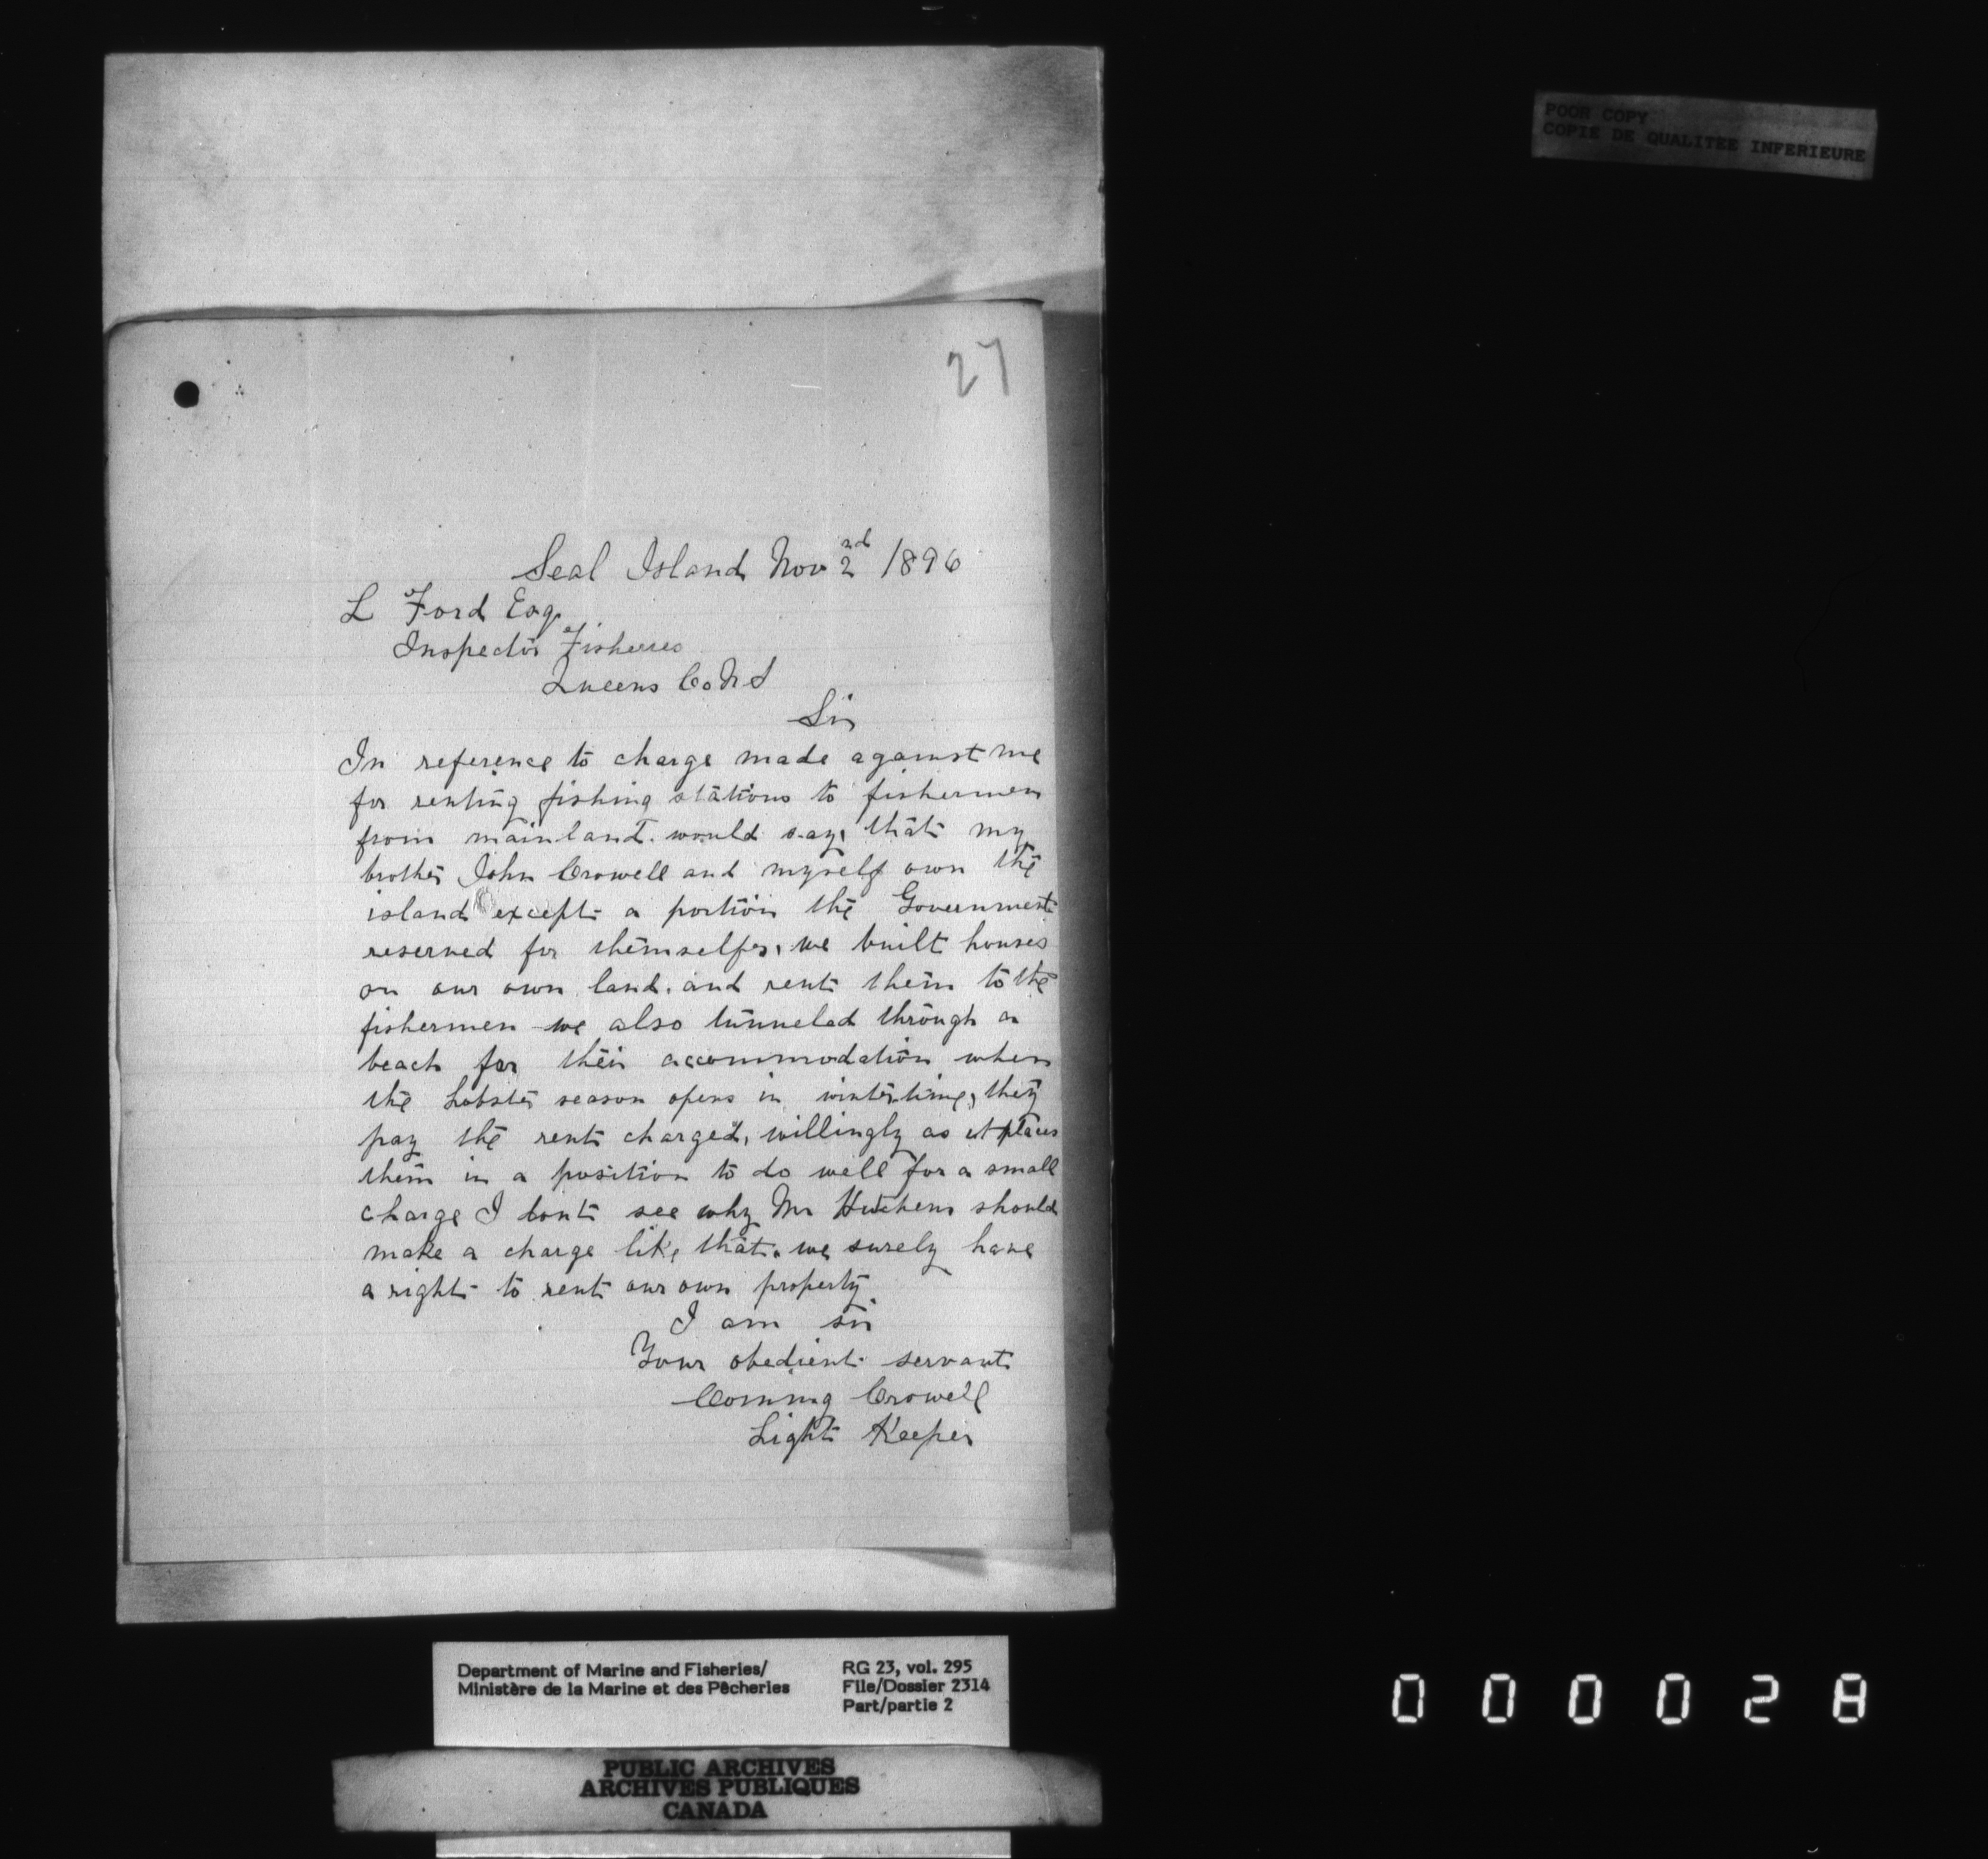 POOR COPY
COPIE DE QUALITEE INFERIEURE
27
Seal Island Nov 2nd 1896
L Ford Esq.
Inspector Fisheries
Queens Co N S
Sir
In reference to charge made against me
for renting fishing stations to fishermen
from mainland. would say that my
brother John Crowell and myself own the
island except a portion the Government
reserved for themselfes, we built houses
on our own land. and rent them to the
fishermen we also tunneled through a
beach for their accommodation when
the Lobster season opens in wintertime, they
pay the rent charged, willingly as it places
them in a position to do well for a small
charge I dont see why Mr Hutchens should
make a charge like that. we surely have
a right to rent our own property.
I am sir
Your obedient servant
Corning Crowell
Light Keeper
Department of Marine and Fisheries/
Ministère de la Marine et des Pêcheries
RG 23, vol. 295
File/Dossier 2314
Part/partie 2
PUBLIC ARCHIVES
ARCHIVES PUBLIQUES
CANADA
000028